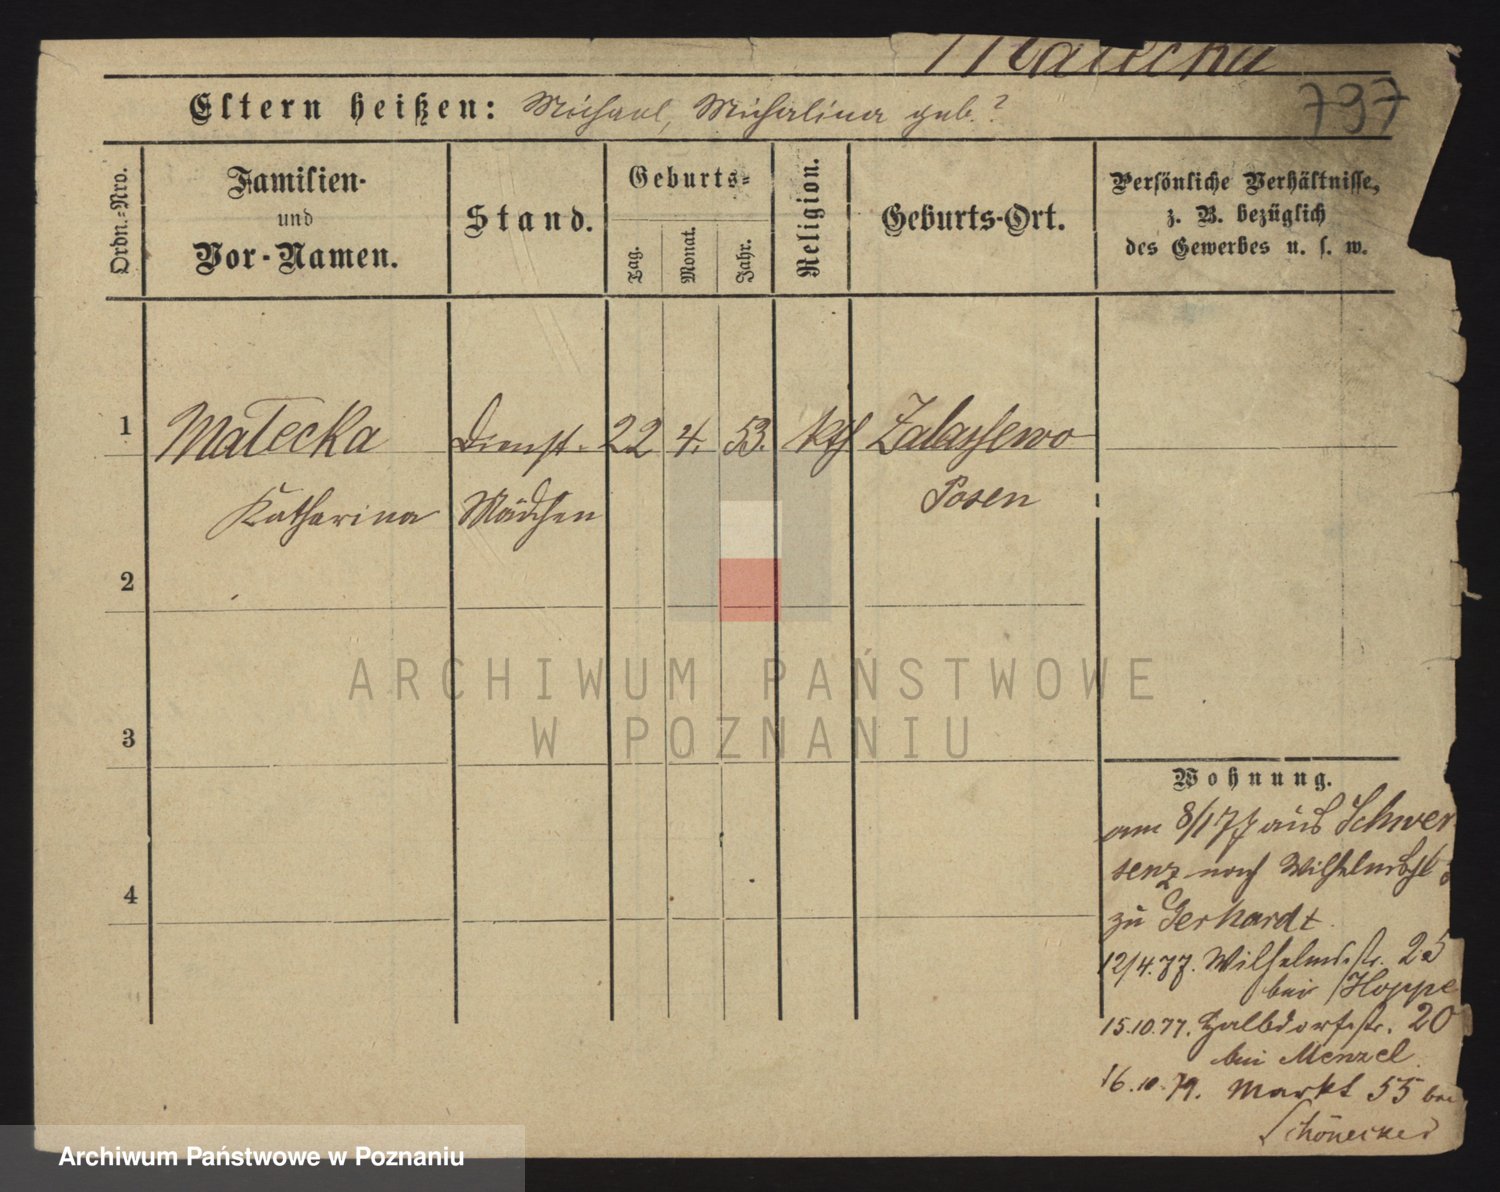 Małecka
Eltern heißen: Michael, Michalina geb. ?
797
Ordn.-Nro.
Familien-
und
Vor-Namen.
Stand.
Geburts-
Tag.
Monat.
Jahr.
Religion.
Geburts-Ort.
Persönliche Verhältnisse,
z. B. bezüglich
des Gewerbes u. s. w.
1 Małecka Dienst- 22 4. 53. kth Zalassewo
Katharina Mädchen Posen
2
3
4
Wohnung.
am 8/1 77 aus Schwer
senz nach Wilhelmsst
zu Gerhardt
12/4.77. Wilhelmsstr. 25
bei Hoppe
15.10.77. Halbdorfstr. 20
bei Menzel
16.10.79. Markt 55 bei
Schönecker
ARCHIWUM PAŃSTWOWE
W POZNANIU
Archiwum Państwowe w Poznaniu